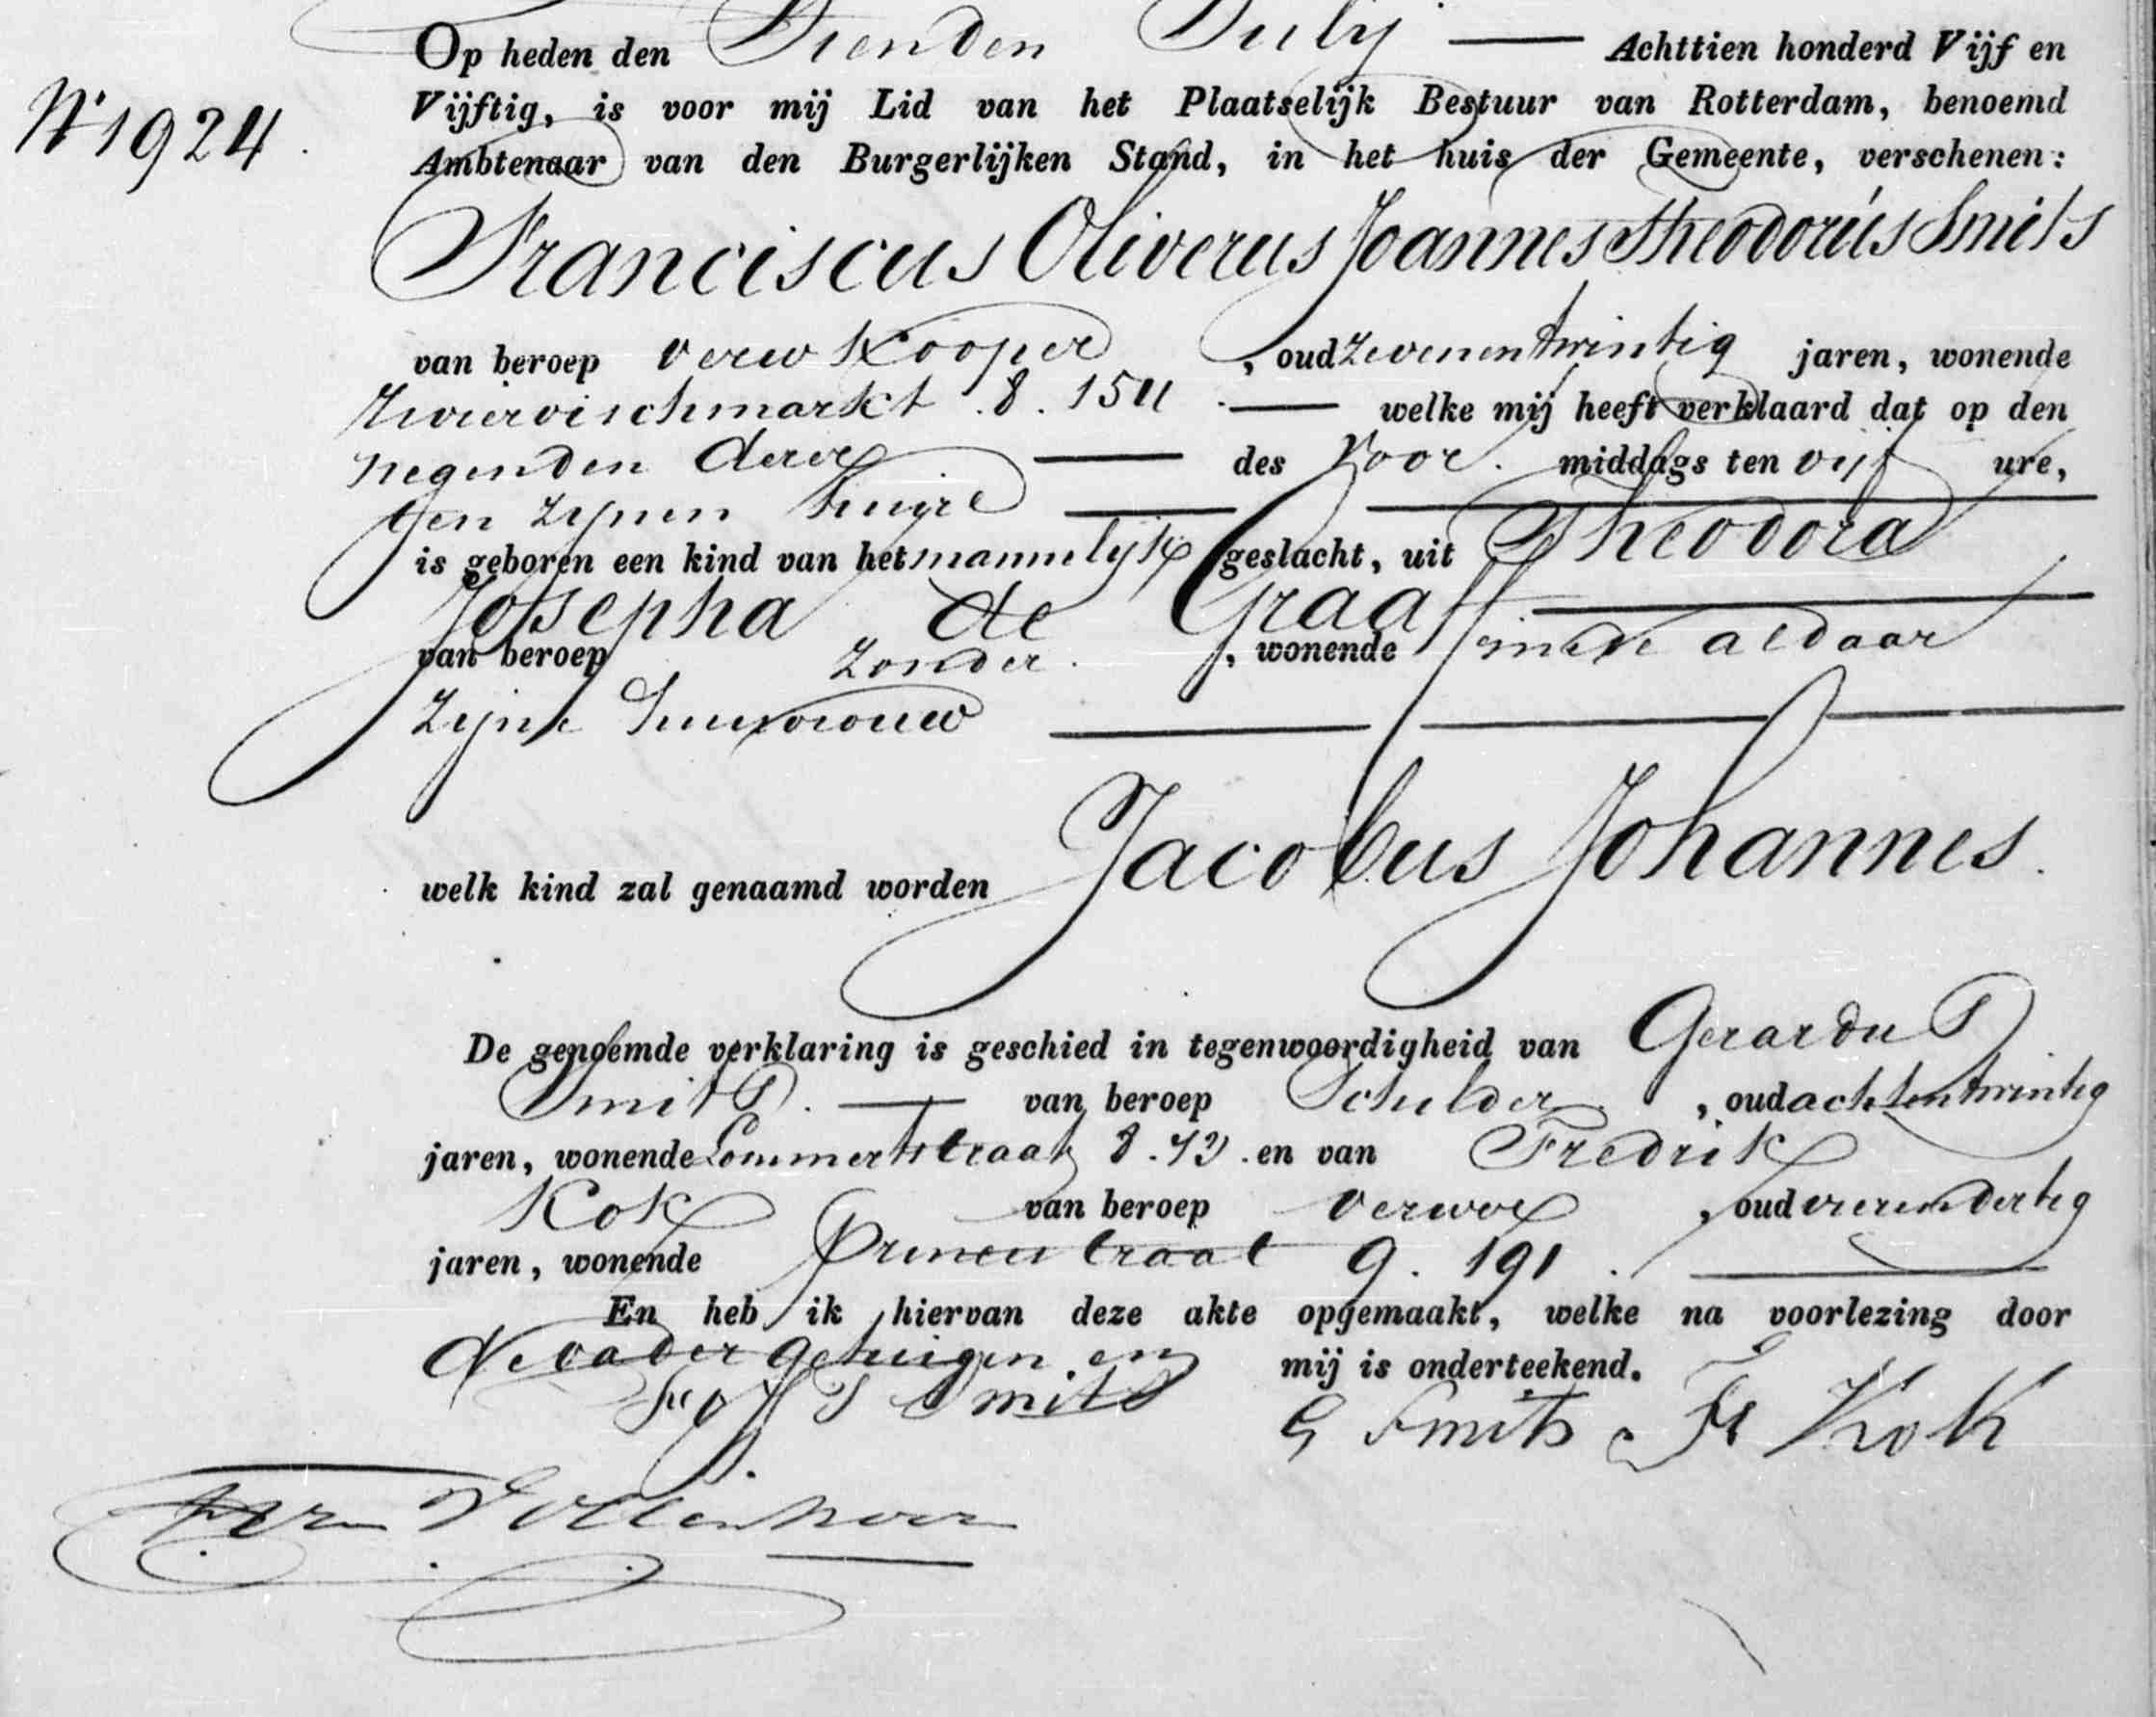 Op heden den Tienden July — Achttien honderd Vijf en
No 1924. Vijftig, is voor mij Lid van het Plaatselijk Bestuur van Rotterdam, benoemd
Ambtenaar van den Burgerlijken Stand, in het huis der Gemeente, verschenen:
Franciscus Oliverus Joannes Theodorus Smits
van beroep verwkooper, oud zevenentwintig jaren, wonende
Riviervischmarkt 8. — welke mij heeft verklaard dat op den
negenden dezer — des voor middags ten vijf ure,
ten zijnen huize —
is geboren een kind van het mannelijk geslacht, uit Theodora
Josepha de Graaff —
van beroep zonder, wonende mede aldaar
zijne huisvrouw —
welk kind zal genaamd worden Jacobus Johannes.
De genoemde verklaring is geschied in tegenwoordigheid van Gerardus
Smits. — van beroep Schilder, oud achtentwintig
jaren, wonende Lommertstraat 8. en van Fredrik
Kok van beroep verwer, oud vierendertig
jaren, wonende Princenstraat 9. 191. —
En heb ik hiervan deze akte opgemaakt, welke na voorlezing door
de vader getuigen en mij is onderteekend.
Smits G Smits Fr Kok